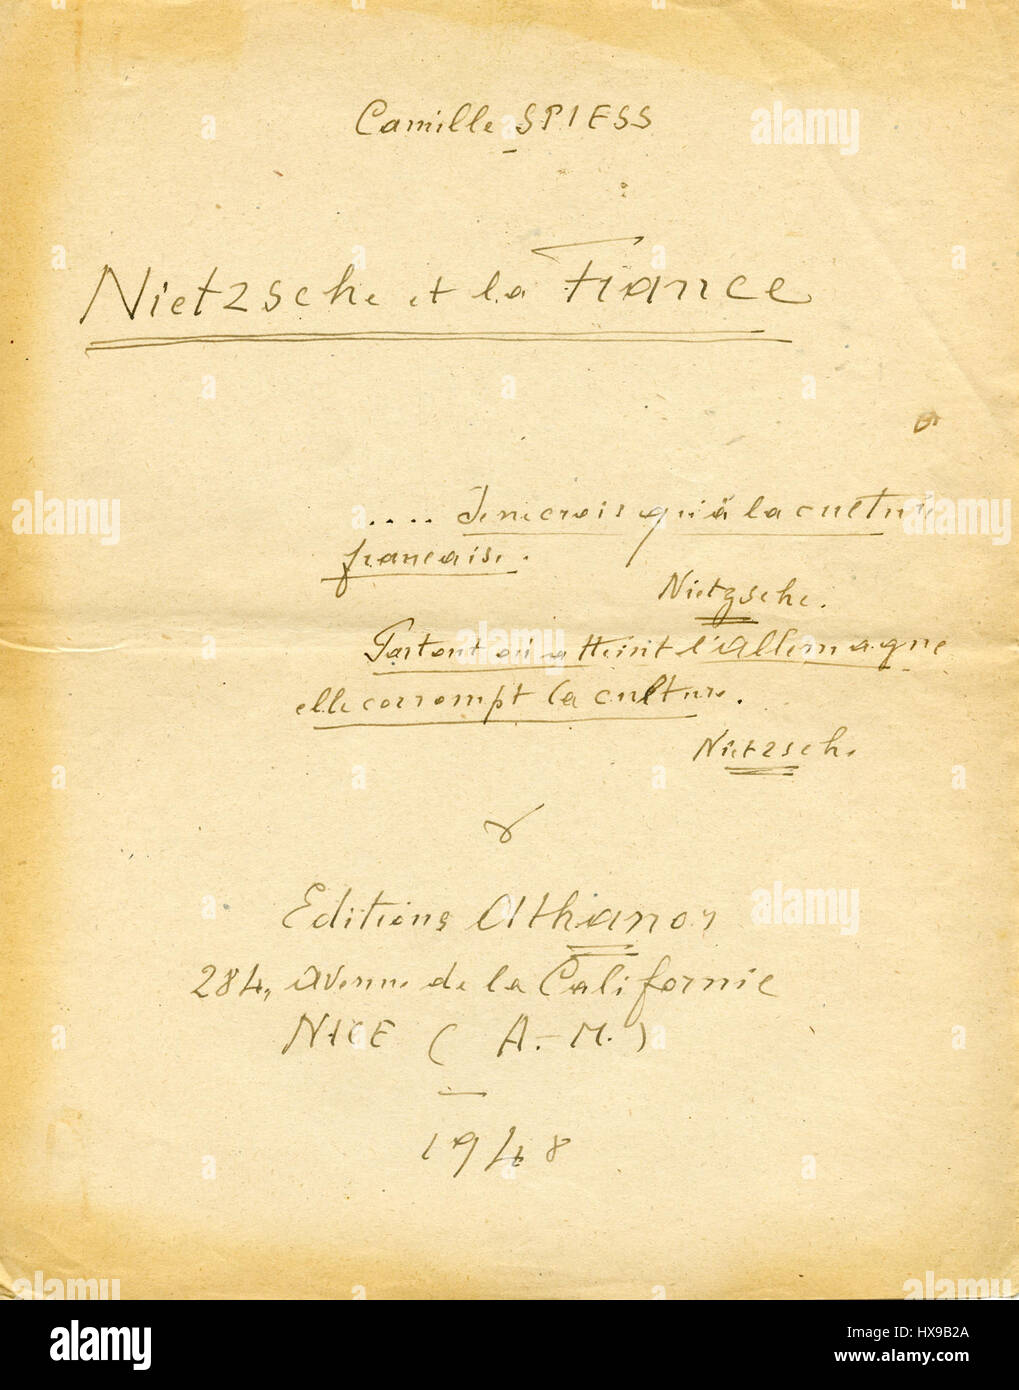 Camille SPIESS
Nietzsche et la France
.... Je ne crois qu'à la culture
française.
Nietzsche.
Partout où atteint l'Allemagne
elle corrompt la culture.
Nietzsche
Editions Athanor
284, avenue de la Californie
NICE ( A.-M. )
1948
alamy
Image ID: HX9B2A
www.alamy.com